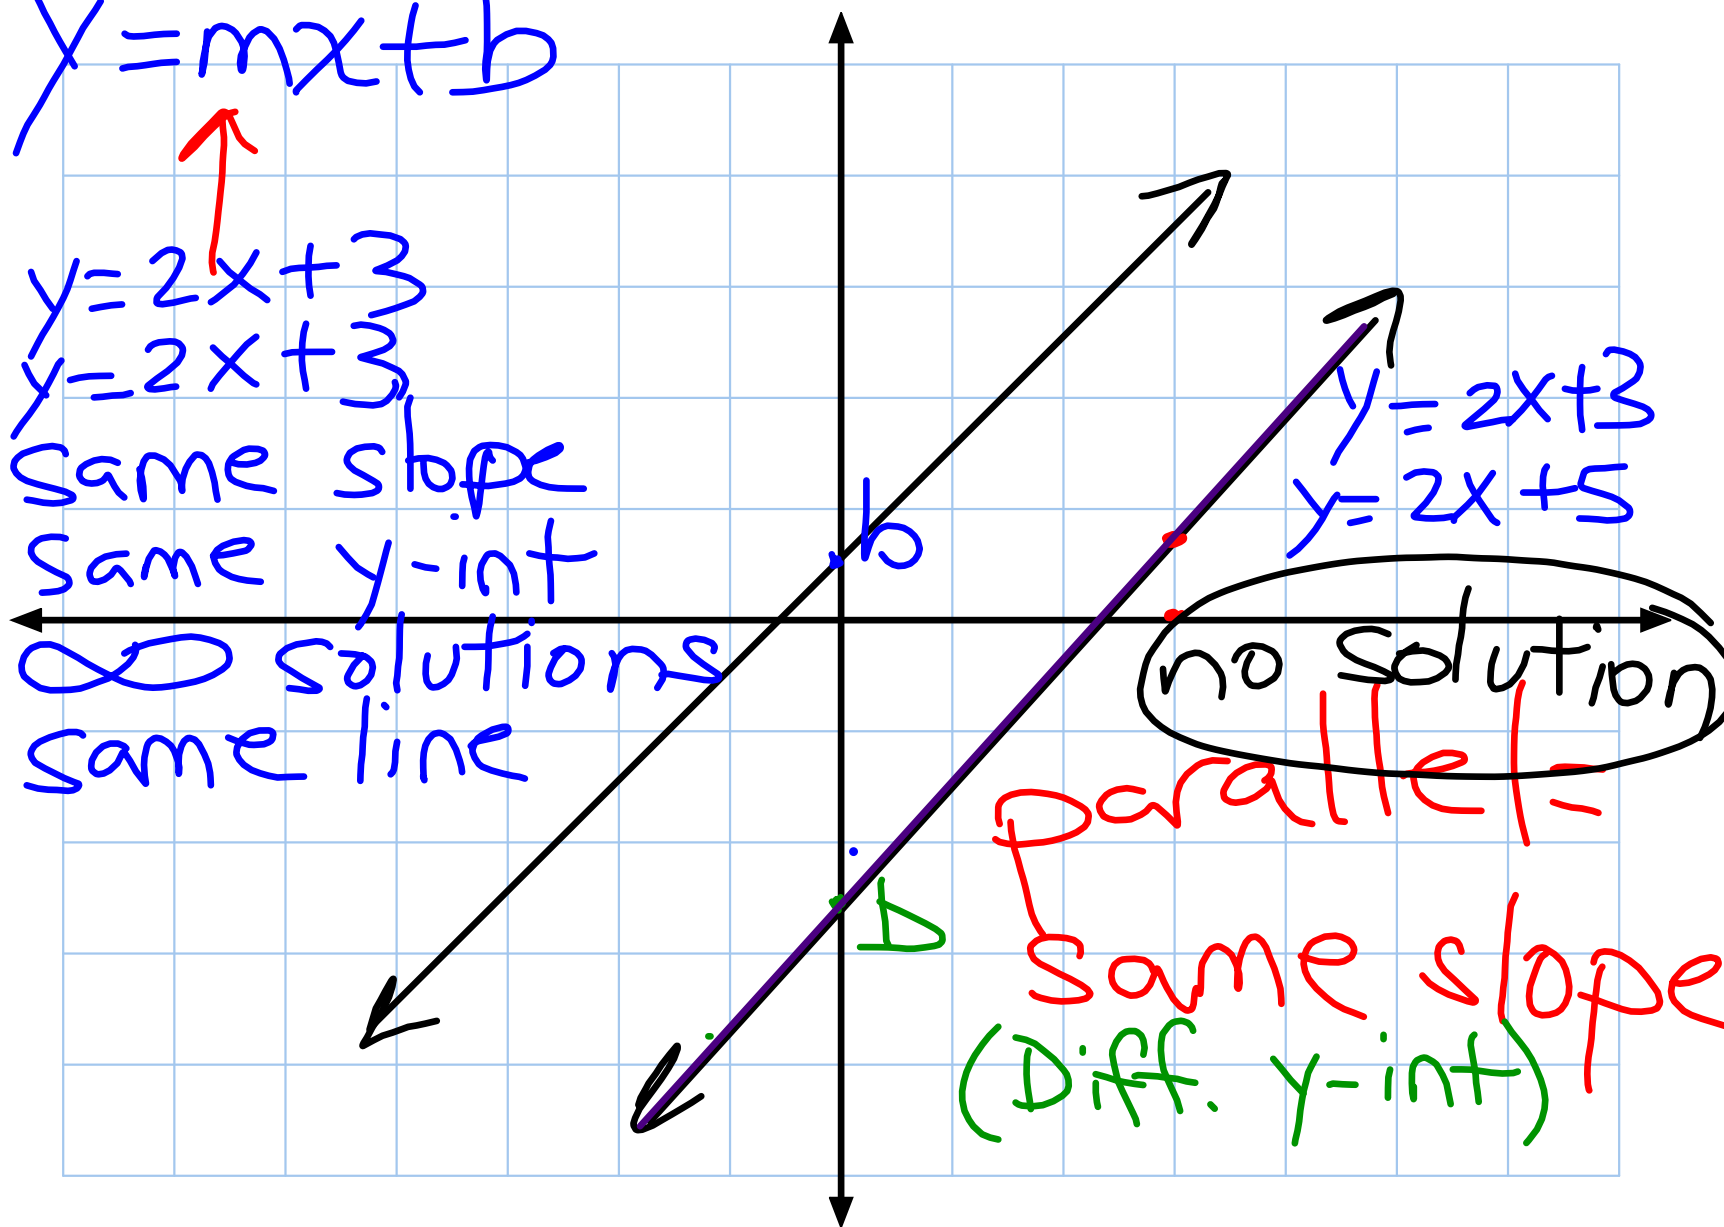 y=mx+b
y=2x+3
y=2x+3
same slope
same y-int
∞ solutions
same line
b
y=2x+3
y=2x+5
no solution
parallel =
b
same slope
(Diff. y-int)